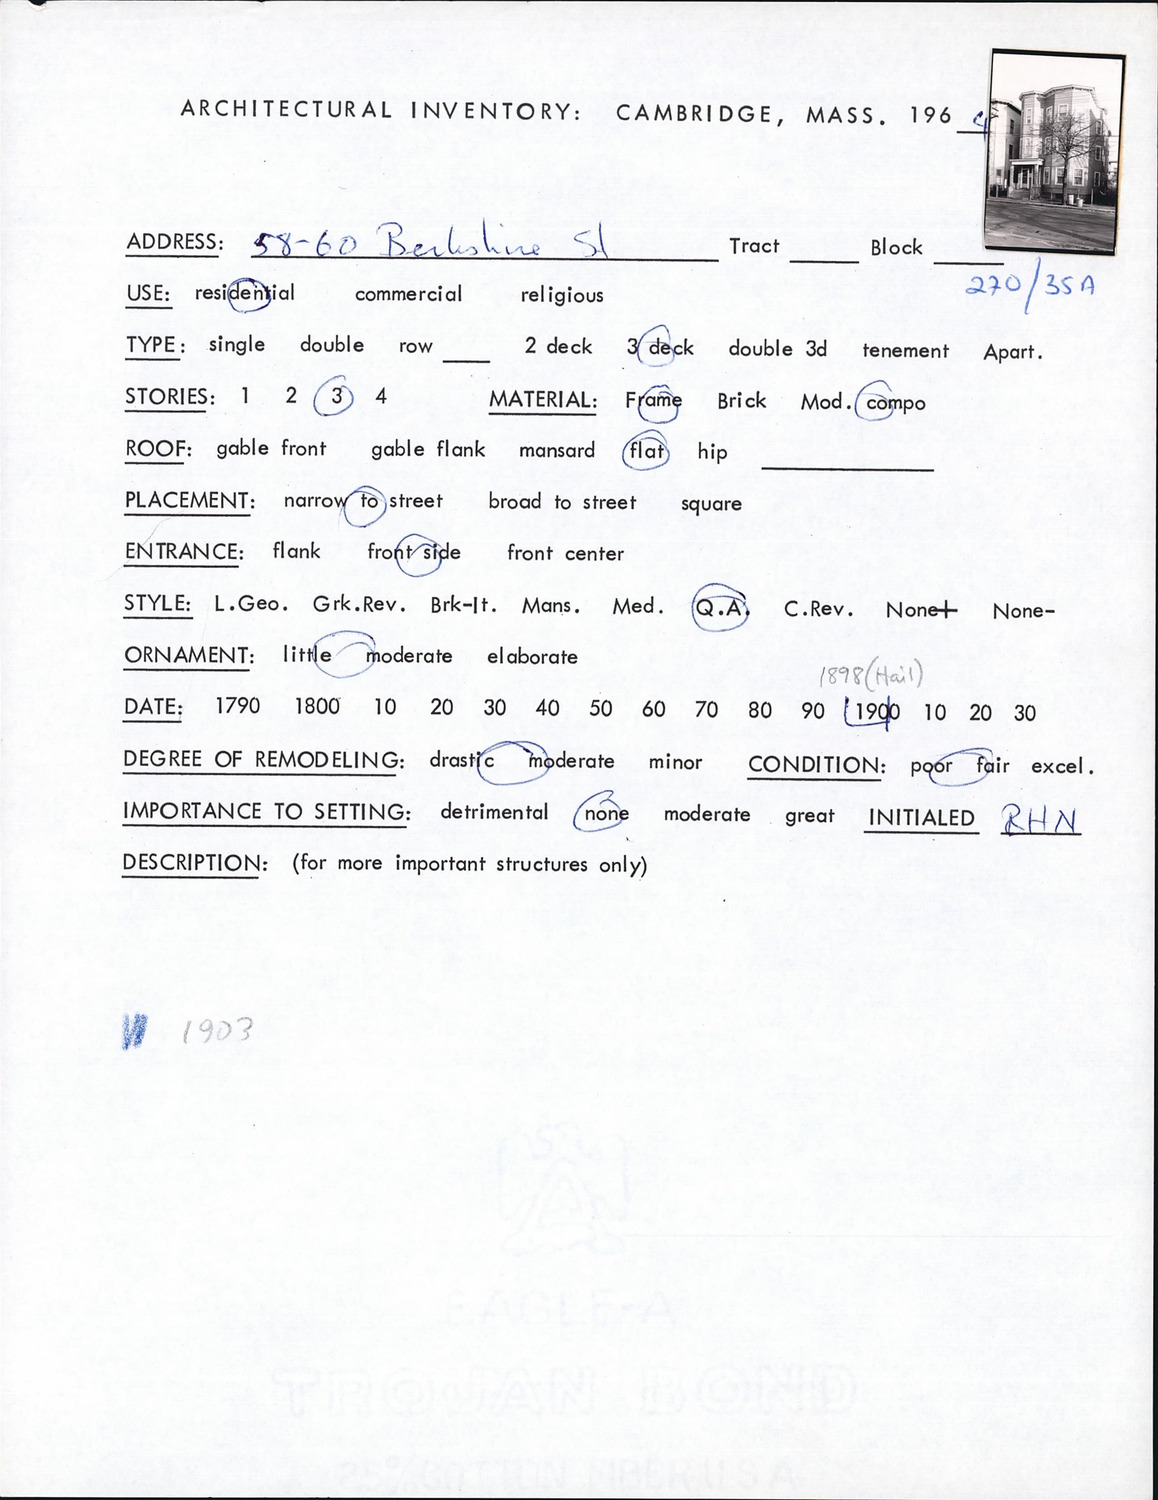 ARCHITECTURAL INVENTORY: CAMBRIDGE, MASS. 196
ADDRESS: 58-60 Berkshire St Tract ____ Block ____
270/35A
USE: residential commercial religious
TYPE: single double row ____ 2 deck 3 deck double 3d tenement Apart.
STORIES: 1 2 3 4 MATERIAL: Frame Brick Mod. compo
ROOF: gable front gable flank mansard flat hip ____
PLACEMENT: narrow to street broad to street square
ENTRANCE: flank front side front center
STYLE: L.Geo. Grk.Rev. Brk-It. Mans. Med. Q.A. C.Rev. None+ None-
ORNAMENT: little moderate elaborate
1898 (Hail)
DATE: 1790 1800 10 20 30 40 50 60 70 80 90 1900 10 20 30
DEGREE OF REMODELING: drastic moderate minor CONDITION: poor fair excel.
IMPORTANCE TO SETTING: detrimental none moderate great INITIALED RHN
DESCRIPTION: (for more important structures only)
1903
EAGLE-A
TROJAN BOND
25% COTTON FIBER U S A